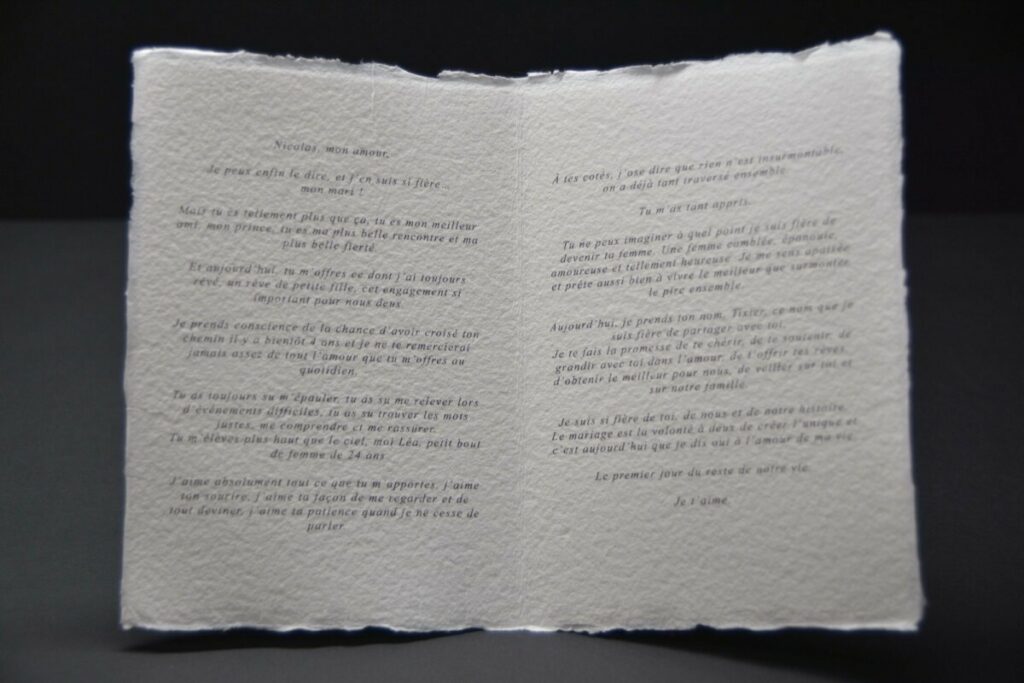 Nicolas, mon amour,
Je peux enfin le dire, et j'en suis si fière...
mon mari !
Mais tu es tellement plus que ça, tu es mon meilleur
ami, mon prince, tu es ma plus belle rencontre et ma
plus belle fierté.
Et aujourd'hui, tu m'offres ce dont j'ai toujours
rêvé, un rêve de petite fille, cet engagement si
important pour nous deux.
Je prends conscience de la chance d'avoir croisé ton
chemin il y a bientôt 4 ans et je ne te remercierai
jamais assez de tout l'amour que tu m'offres au
quotidien.
Tu as toujours su m'épauler, tu as su me relever lors
d'événements difficiles, tu as su trouver les mots
justes, me comprendre et me rassurer.
Tu m'élèves plus haut que le ciel, moi Léa, petit bout
de femme de 24 ans.
J'aime absolument tout ce que tu m'apportes, j'aime
ton sourire, j'aime ta façon de me regarder et de
tout deviner, j'aime ta patience quand je ne cesse de
parler.
À tes cotés, j'ose dire que rien n'est insurmontable,
on a déjà tant traversé ensemble.
Tu m'as tant appris.
Tu ne peux imaginer à quel point je suis fière de
devenir ta femme. Une femme comblée, épanouie,
amoureuse et tellement heureuse. Je me sens apaisée
et prête aussi bien à vivre le meilleur que surmonter
le pire ensemble.
Aujourd'hui, je prends ton nom, Tixier, ce nom que je
suis fière de partager avec toi.
Je te fais la promesse de te chérir, de te soutenir, de
grandir avec toi dans l'amour, de t'offrir tes rêves,
d'obtenir le meilleur pour nous, de veiller sur toi et
sur notre famille.
Je suis si fière de toi, de nous et de notre histoire.
Le mariage est la volonté à deux de créer l'unique et
c'est aujourd'hui que je dis oui à l'amour de ma vie.
Le premier jour du reste de notre vie.
Je t'aime